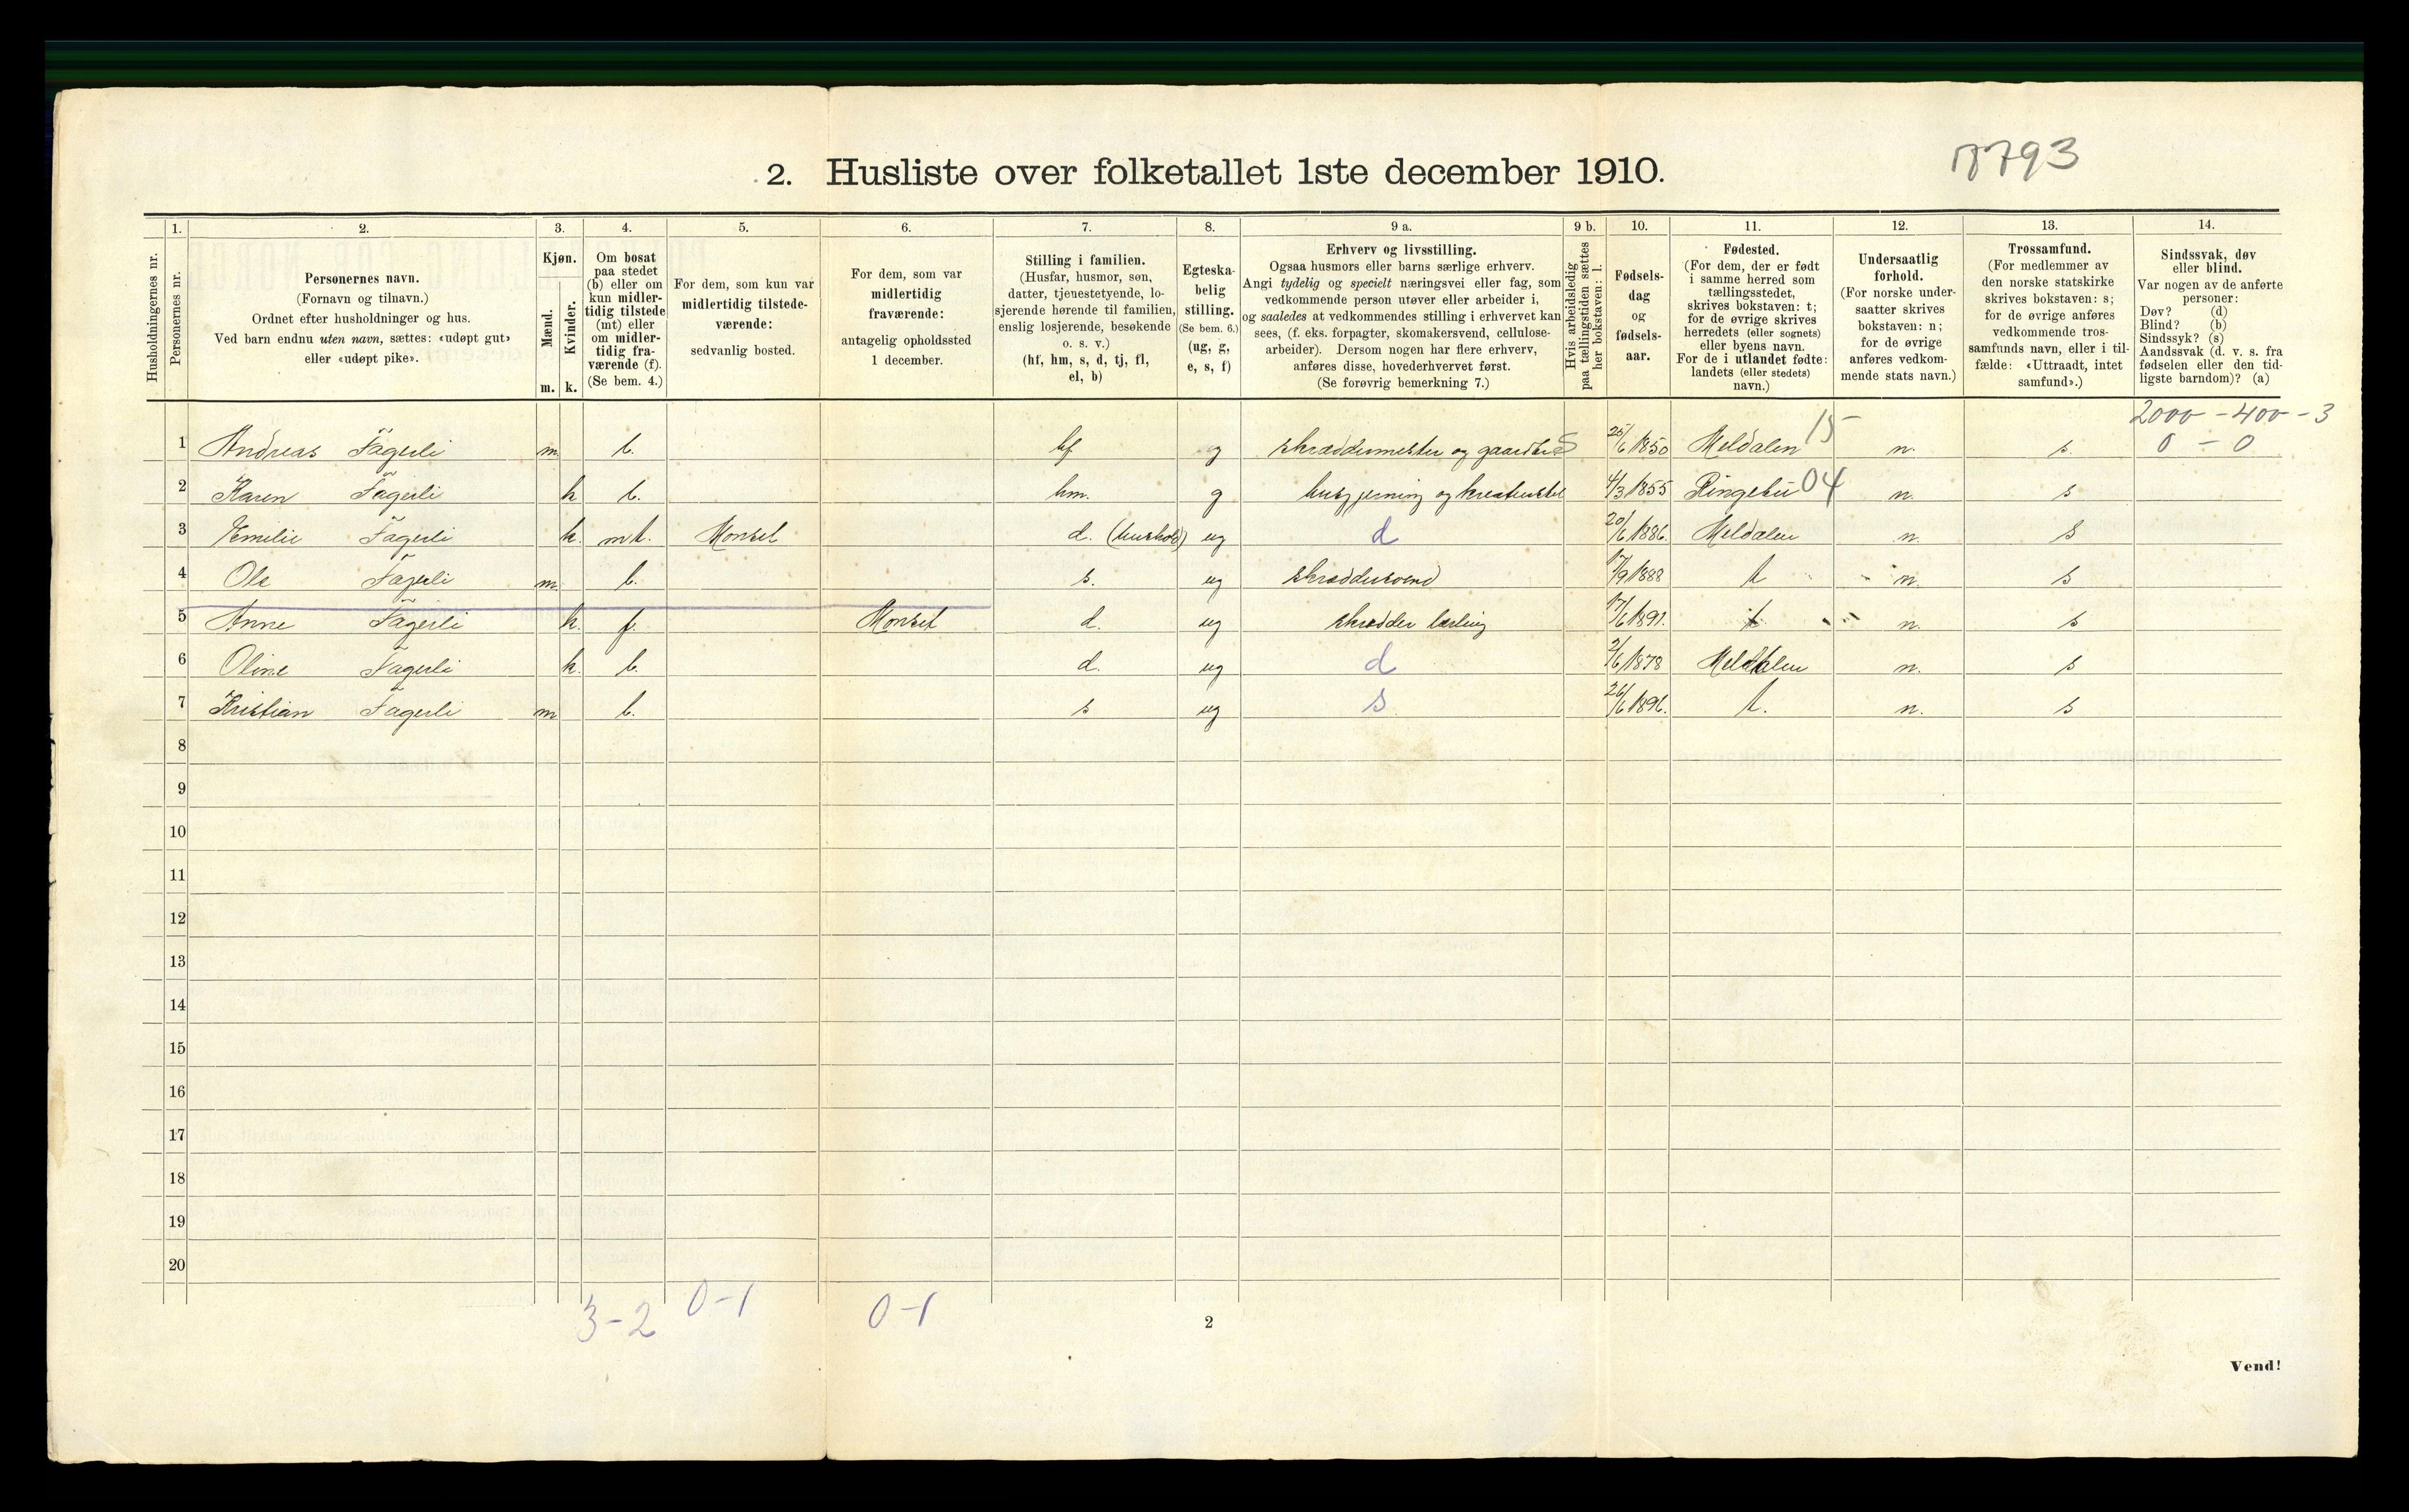 2. Husliste over folketallet 1ste december 1910.
1. 2. 3. 4. 5. 6. 7. 8. 9 a. 9 b. 10. 11. 12. 13. 14.
Husholdningernes nr.
Personernes nr.
Personernes navn.
(Fornavn og tilnavn.)
Ordnet efter husholdninger og hus.
Ved barn endnu uten navn, sættes: «udøpt gut»
eller «udøpt pike».
Kjøn.
Mænd.
m.
Kvinder.
k.
Om bosat
paa stedet
(b) eller om
kun midler-
tidig tilstede
(mt) eller
om midler-
tidig fra-
værende (f).
(Se bem. 4.)
For dem, som kun var
midlertidig tilstede-
værende:
sedvanlig bosted.
For dem, som var
midlertidig
fraværende:
antagelig opholdssted
1 december.
Stilling i familien.
(Husfar, husmor, søn,
datter, tjenestetyende, lo-
sjerende hørende til familien,
enslig losjerende, besøkende
o. s. v.)
(hf, hm, s, d, tj, fl,
el, b)
Egteska-
belig
stilling.
(Se bem. 6.)
(ug, g,
e, s, f)
Erhverv og livsstilling.
Ogsaa husmors eller barns særlige erhverv.
Angi tydelig og specielt næringsvei eller fag, som
vedkommende person utøver eller arbeider i,
og saaledes at vedkommendes stilling i erhvervet kan
sees, (f. eks. forpagter, skomakersvend, cellulose-
arbeider). Dersom nogen har flere erhverv,
anføres disse, hovederhvervet først.
(Se forøvrig bemerkning 7.)
Hvis arbeidsledig
paa tællingstiden sættes
her bokstaven: l.
Fødsels-
dag
og
fødsels-
aar.
Fødested.
(For dem, der er født
i samme herred som
tællingsstedet,
skrives bokstaven: t;
for de øvrige skrives
herredets (eller sognets)
eller byens navn.
For de i utlandet fødte:
landets (eller stedets)
navn.)
Undersaatlig
forhold.
(For norske under-
saatter skrives
bokstaven: n;
for de øvrige
anføres vedkom-
mende stats navn.)
Trossamfund.
(For medlemmer av
den norske statskirke
skrives bokstaven: s;
for de øvrige anføres
vedkommende tros-
samfunds navn, eller i til-
fælde: «Uttraadt, intet
samfund».)
Sindssvak, døv
eller blind.
Var nogen av de anførte
personer:
Døv? (d)
Blind? (b)
Sindssyk? (s)
Aandssvak (d. v. s. fra
fødselen eller den tid-
ligste barndom)? (a)
15 2000 - 400 - 3
1 Andreas Fagerli m b. hf g skræddermester og S 25/6 1850 Meldalen n. s. 0 - 0
2 Karen Fagerli k b. hm. g husgjerning og 4/3 1855 Ringebu 04 n. s
3 Emilie Fagerli k. mt. Monset d. (hushold) ug d 20/6 1886. Meldalen n. s
4 Ole Fagerli m b. s. ug skræddersvend 17/9 1888 t n. s
5 Anne Fagerli k. f. Monset d. ug skrædder lærling 17/6 1891. t n. s
6 Oline Fagerli k. b. d. ug d 2/6 1878 Meldalen n. s
7 Kristian Fagerli m b. s ug s 26/6 1896. t. n. s
8
9
10
11
12
13
14
15
16
17
18
19
20
3-2 0-1 0-1
2
Vend!